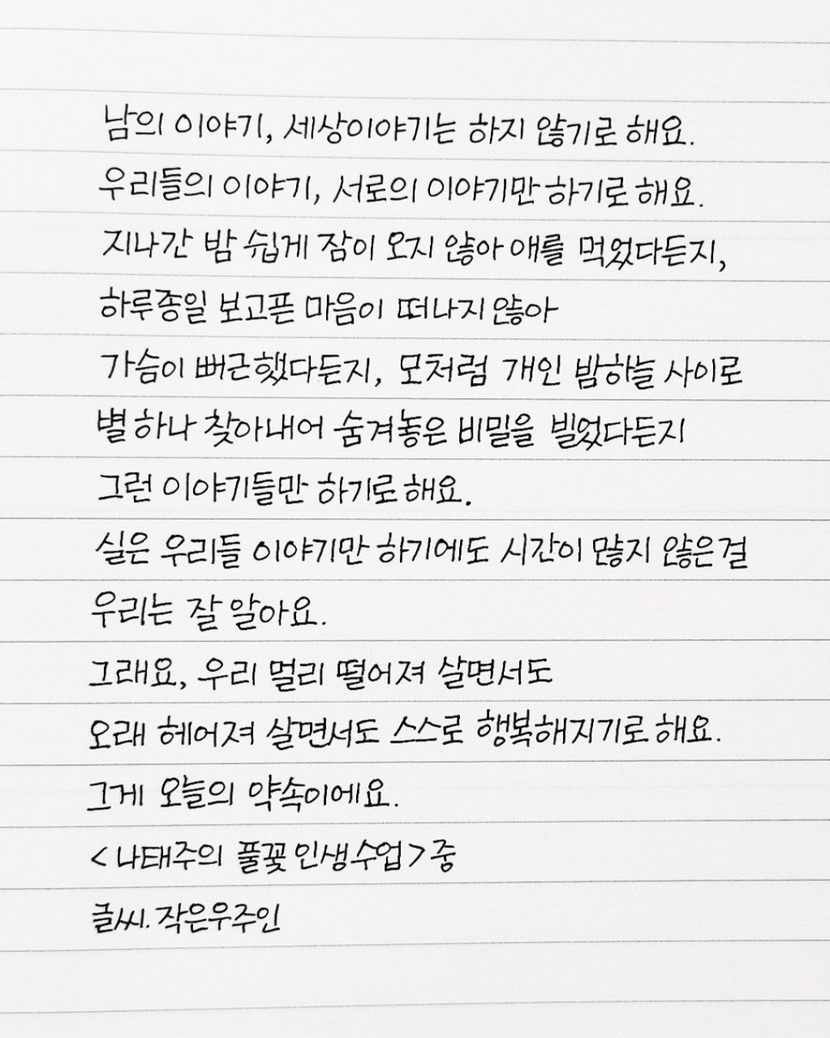 남의 이야기, 세상이야기는 하지 않기로 해요.
우리들의 이야기, 서로의 이야기만 하기로 해요.
지나간 밤 쉽게 잠이 오지 않아 애를 먹었다든지,
하루종일 보고픈 마음이 떠나지 않아
가슴이 뻐근했다든지, 모처럼 개인 밤하늘 사이로
별 하나 찾아내어 숨겨놓은 비밀을 빌었다든지
그런 이야기들만 하기로 해요.
실은 우리들 이야기만 하기에도 시간이 많지 않은걸
우리는 잘 알아요.
그래요, 우리 멀리 떨어져 살면서도
오래 헤어져 살면서도 스스로 행복해지기로 해요.
그게 오늘의 약속이에요.
<나태주의 풀꽃 인생수업> 중
글씨. 작은우주인